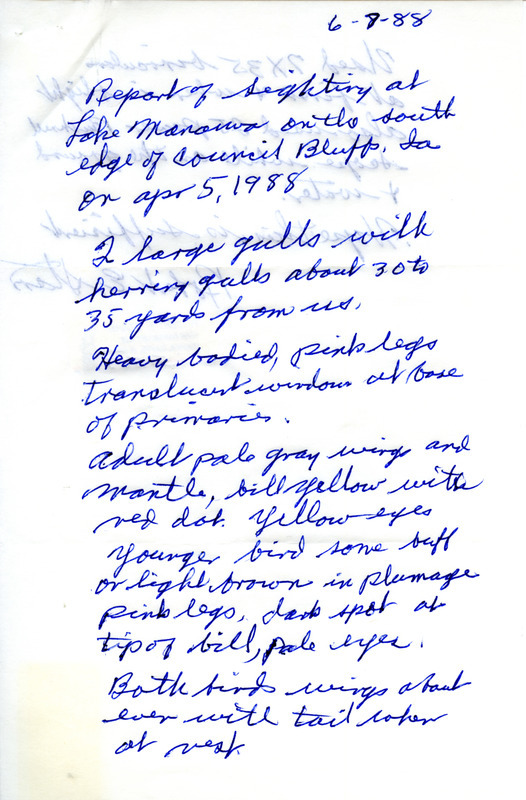 6-9-88
Report of sighting at
Lake Manawa on the south
edge of Council Bluffs, Ia
on apr 5, 1988
2 large gulls with
herring gulls about 30 to
35 yards from us.
Heavy bodied, pink legs
translucent windows at base
of primaries.
Adult pale gray wings and
mantle, bill yellow with
red dot. Yellow eyes
Younger bird some buff
or light brown in plumage
pink legs, dark spot at
tip of bill, pale eyes.
Both birds wings about
even with tail when
at rest.